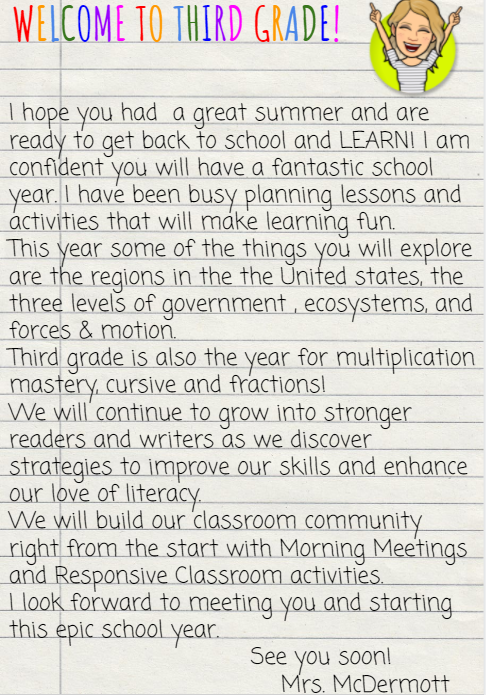 WELCOME TO THIRD GRADE!
I hope you had a great summer and are
ready to get back to school and LEARN! I am
confident you will have a fantastic school
year. I have been busy planning lessons and
activities that will make learning fun.
This year some of the things you will explore
are the regions in the the United states, the
three levels of government , ecosystems, and
forces & motion.
Third grade is also the year for multiplication
mastery, cursive and fractions!
We will continue to grow into stronger
readers and writers as we discover
strategies to improve our skills and enhance
our love of literacy.
We will build our classroom community
right from the start with Morning Meetings
and Responsive Classroom activities.
I look forward to meeting you and starting
this epic school year.
See you soon!
Mrs. McDermott